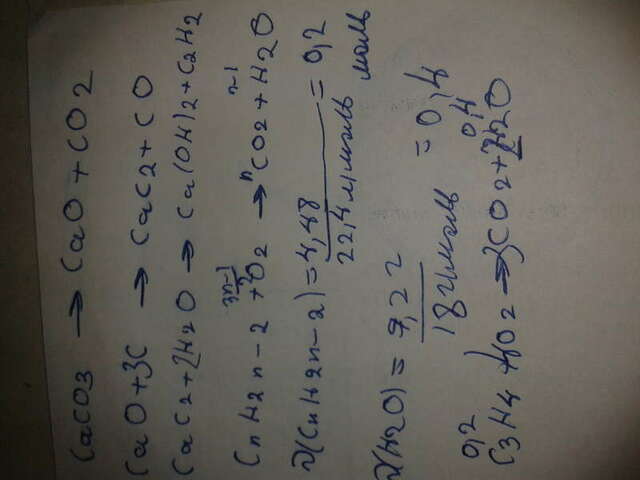 CaCO3 → CaO + CO2
CaO + 3C → CaC2 + CO
CaC2 + 2H2O → Ca(OH)2 + C2H2
CnH2n-2 + 3n-1/2 O2 → nCO2 + n-1 H2O
ν(CnH2n-2) = 4,48 / 22,4 л/моль = 0,2 моль
ν(H2O) = 7,2 г / 18 г/моль = 0,4
0,2 0,4
C3H4 + 4O2 → 3CO2 + 2H2O